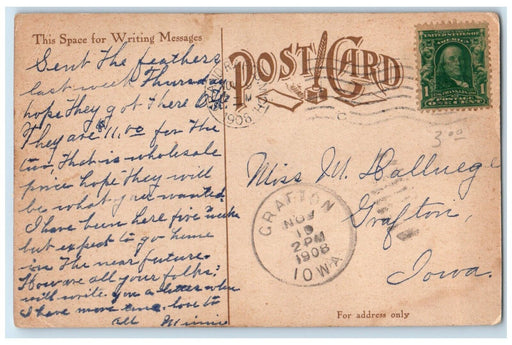 This Space for Writing Messages
Sent The feathers
last week Thursday
hope They got There O.K.
They are $11.00 for The
two, That is wholesale
price hope They will
be what you wanted.
I have been here five weeks
but expect to go home
in The near future.
How are all your folks?
will write you a letter when
I have more time. love to
all Minnie
POST CARD
UNITED STATES OF AMERICA
1
1908
3 00
Miss M. Halluege
Grafton,
Iowa.
GRAFTON
NOV
2 PM
1908
IOWA
For address only